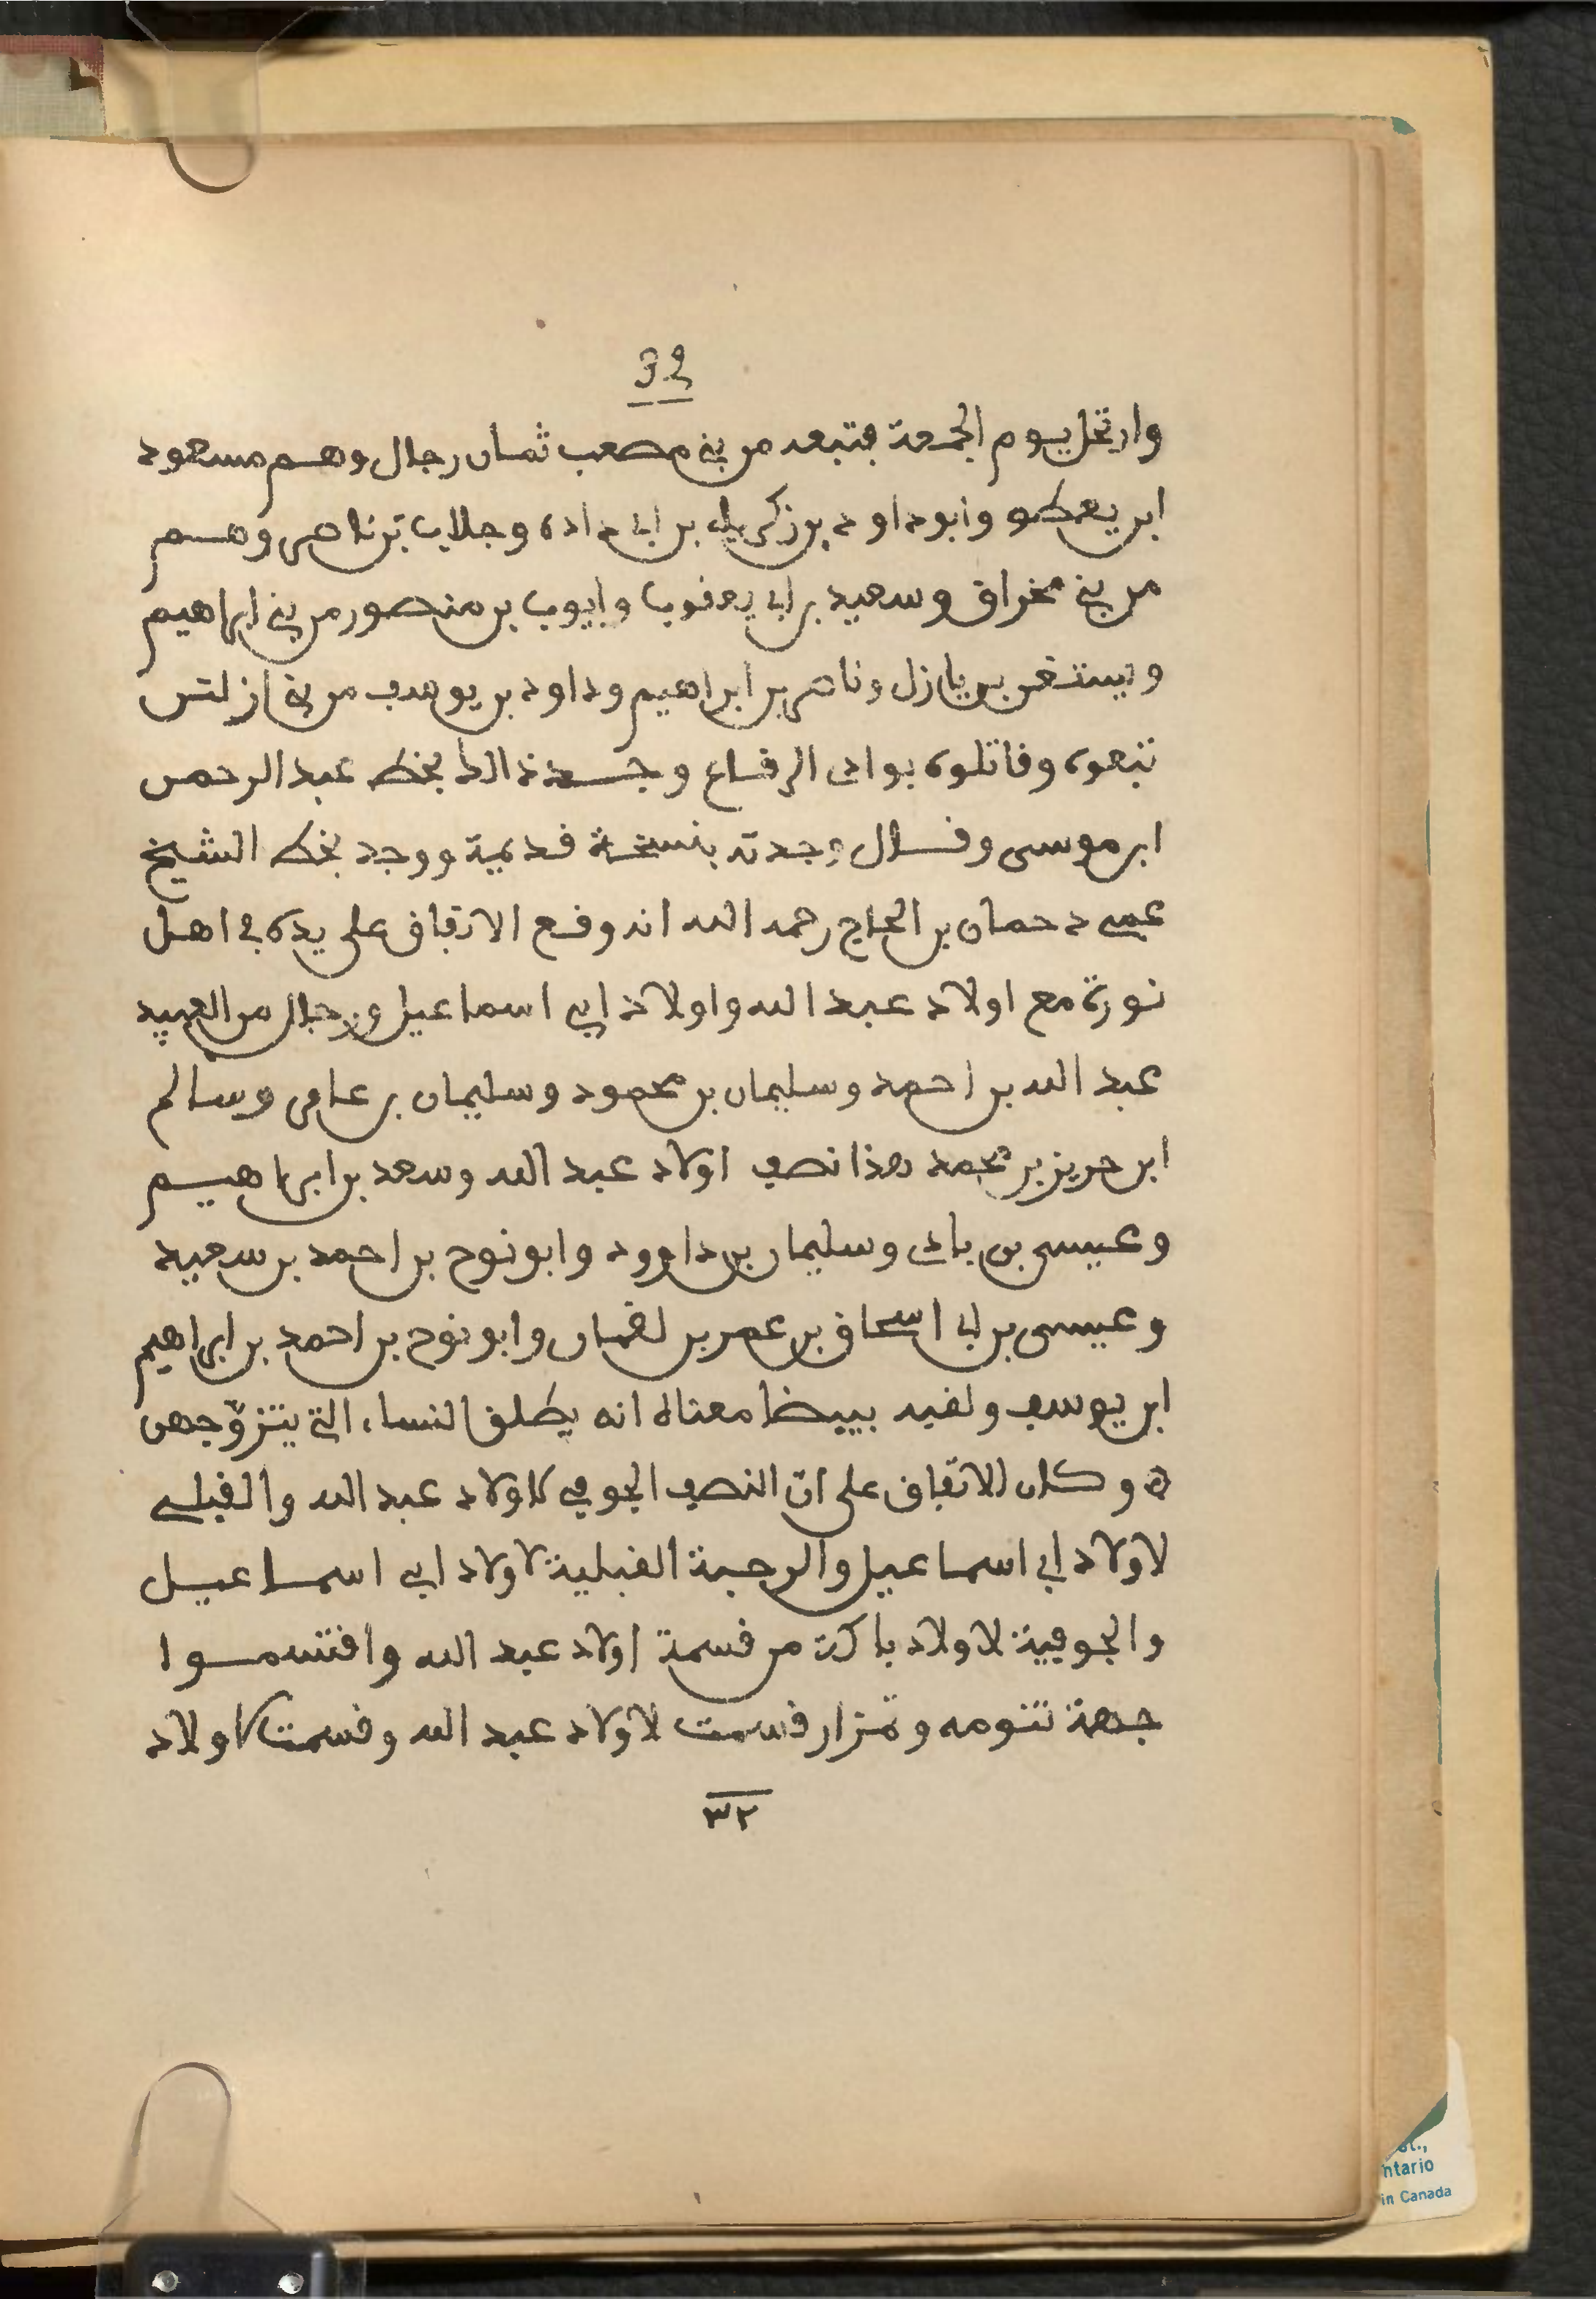 32
وارتحل يوم الجمعة فتبعه من بني مصعب ثمان رجال وهم مسعود
ابن يعطو وابو داود بن زكرياء بن ابي داده وجلاب بن ناصر وهم
من بني مخراق وسعيد بن ابي يعقوب وايوب بن منصور من بني ابراهيم
ويستغن بن يازل وناصر بن ابراهيم وداود بن يوسف من بني ازلتن
تبعوه وقاتلوه بوادى الرقاع وجد ذالك بخط عبد الرحمن
ابن موسى وقال وجدته بنسخة قديمة ووجد بخط الشيخ
عمي دحمان بن الحاج رحمه الله انه وقع الاتفاق على يده في اهل
نورة مع اولاد عبد الله واولاد ابي اسماعيل ورجال من العبيد
عبد الله بن احمد وسليمان بن محمود وسليمان بن عامر وسالم
ابن حريز بن محمد هذا نصف اولاد عبد الله وسعد بن ابراهيم
وعيسى بن بادى وسليمان بن داوود وابو نوح بن احمد بن سعيد
وعيسى بن ابي اسحاق بن عمر بن لقمان وابو نوح بن احمد بن ابراهيم
ابن يوسف ولقبه ببيضا معناه انه يطلق النساء التي يتزوّجهن
ه وكان الاتفاق على انّ النصف الجوفي لاولاد عبد الله والقبلي
لاولاد ابي اسماعيل والرحبة القبلية لاولاد ابي اسماعيل
والجوفية لاولاد باكة من قسمة اولاد عبد الله واقتسموا
جهة تنومه وتمزار قسمت لاولاد عبد الله وقسمت لاولاد
٣٢
ntario
in Canada